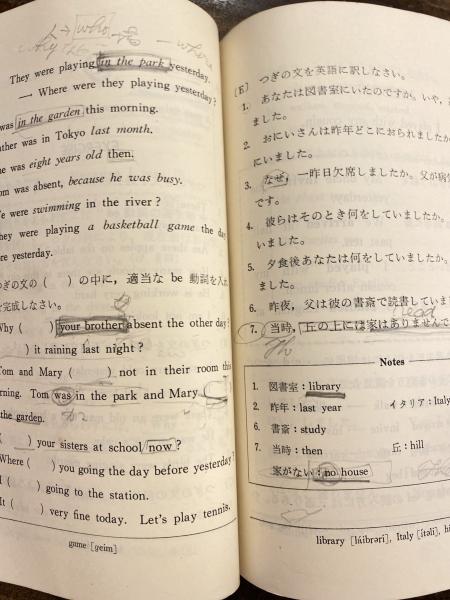 who
They were playing in the park yesterday.
→ Where were they playing yesterday?
was in the garden this morning.
ather was in Tokyo last month.
he was eight years old then.
om was absent, because he was busy.
We were swimming in the river?
They were playing a basketball game the day
re yesterday.
つぎの文の( )の中に，適当な be 動詞を入れ
を完成しなさい。
Why ( ) your brother absent the other day?
) it raining last night?
Tom and Mary ( ) not in their room this
rning. Tom was in the park and Mary
the garden.
( ) your sisters at school now?
Where ( ) you going the day before yesterday?
I ( ) going to the station.
It ( ) very fine today. Let's play tennis.
game [geim]
つぎの文を英語に訳しなさい。
1. あなたは図書室にいたのですか。いや，
ました。
2. おにいさんは昨年どこにおられましたか
にいました。
3. なぜ，一昨日欠席しましたか。父が病
です。
4. 彼らはそのとき何をしていましたか。
いました。
5. 夕食後あなたは何をしていましたか。
ました。
6. 昨夜，父は彼の書斎で読書していま
read
7. 当時，丘の上には家はありませんで
Notes
1. 図書室：library
2. 昨年：last year イタリア：Italy
6. 書斎：study
7. 当時：then 丘：hill
家がない：no house
library [láibrəri], Italy [ítəli], hi